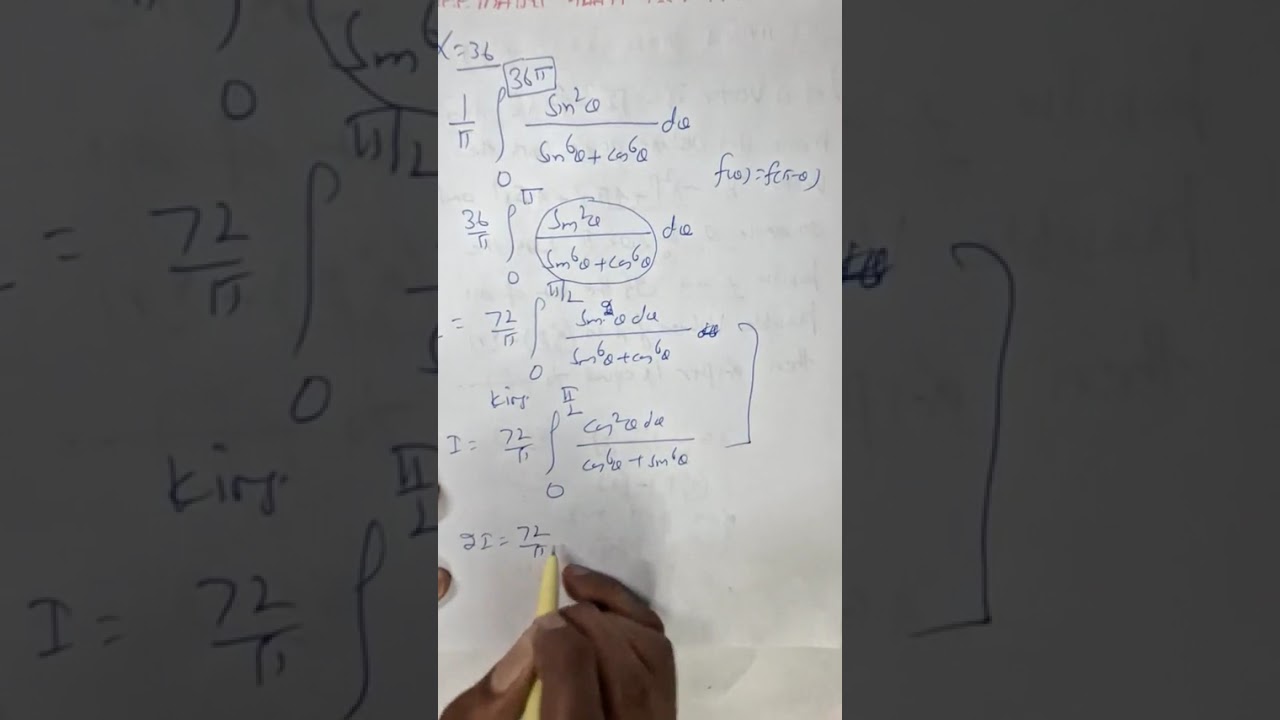 α=36
1/π ∫₀^36π sin²θ/(sin⁶θ+cos⁶θ) dθ
f(θ)=f(π-θ)
36/π ∫₀^π sin²θ/(sin⁶θ+cos⁶θ) dθ
= 72/π ∫₀^π/2 sin²θ dθ/(sin⁶θ+cos⁶θ)
King
I = 72/π ∫₀^π/2 cos²θ dθ/(cos⁶θ+sin⁶θ)
2I = 72/π